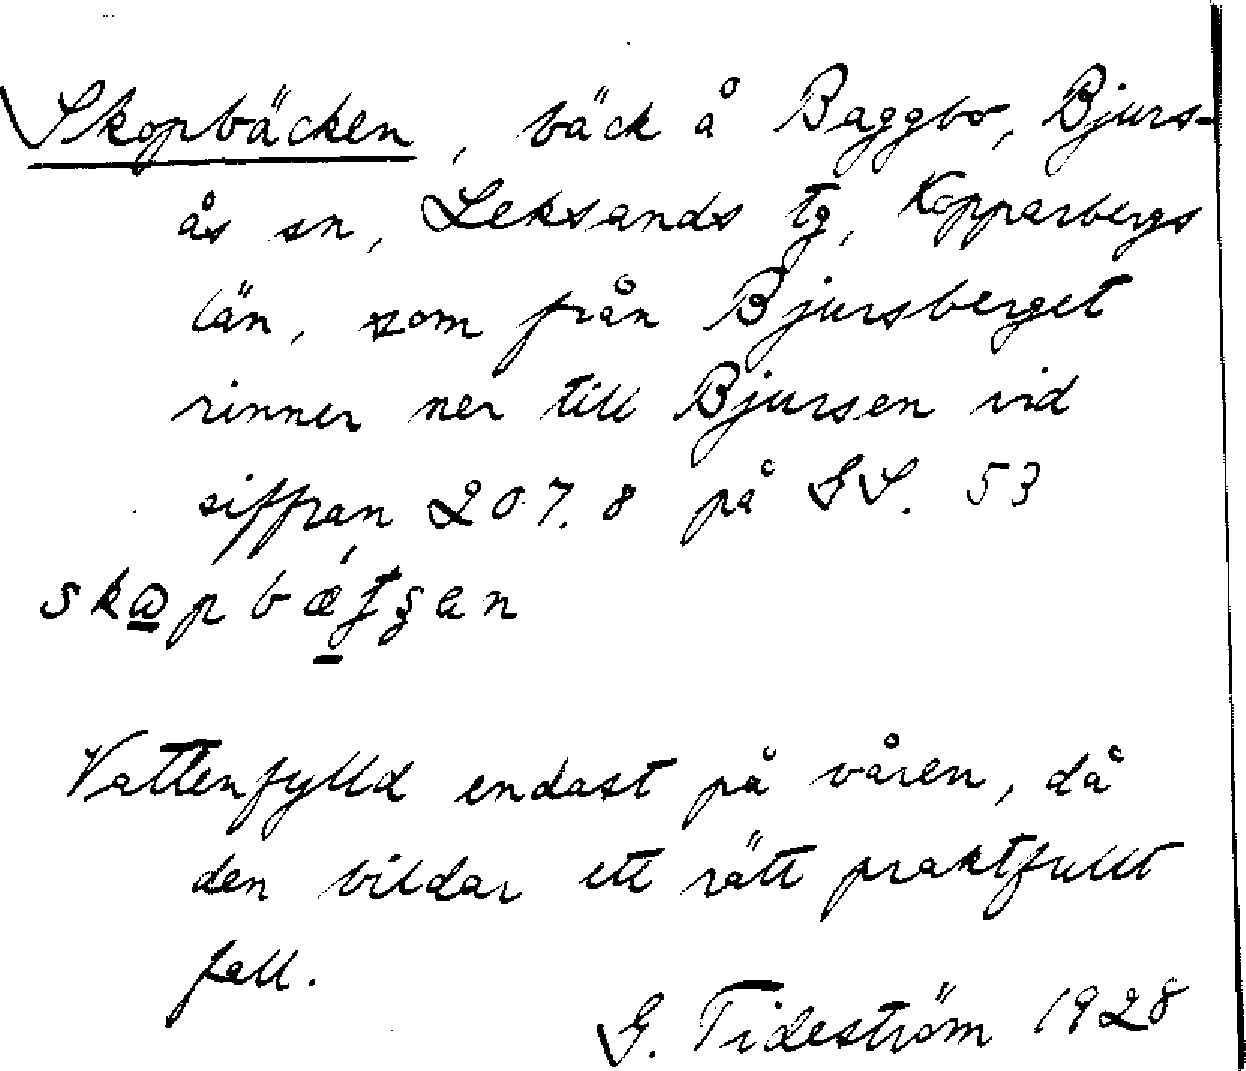 Skopbäcken, bäck å Baggbo, Bjurs-
ås sn, Leksands tg, Kopparbergs
län, som från Bjursberget
rinner ner till Bjursen vid
siffran 207.8 på SV. 53
Vattenfylld endast på våren, då
den bildar ett rätt praktfullt
fall.
G. Tideström 1928